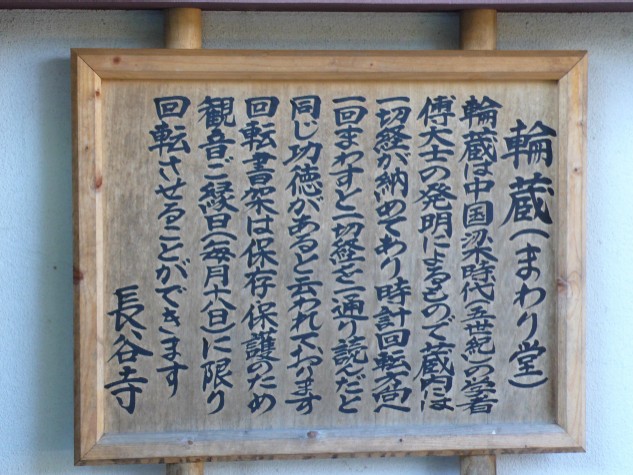 輪蔵(まわり堂)
輪蔵は中国梁時代(五世紀)の学者
傅大士の発明によるもので蔵内には
一切経が納めてあり時計回転方向へ
一回まわすと一切経を一通り読んだと
同じ功徳があると云われております
回転書架は保存・保護のため
観音ご縁日(毎月十八日)に限り
回転させることができます
長谷寺